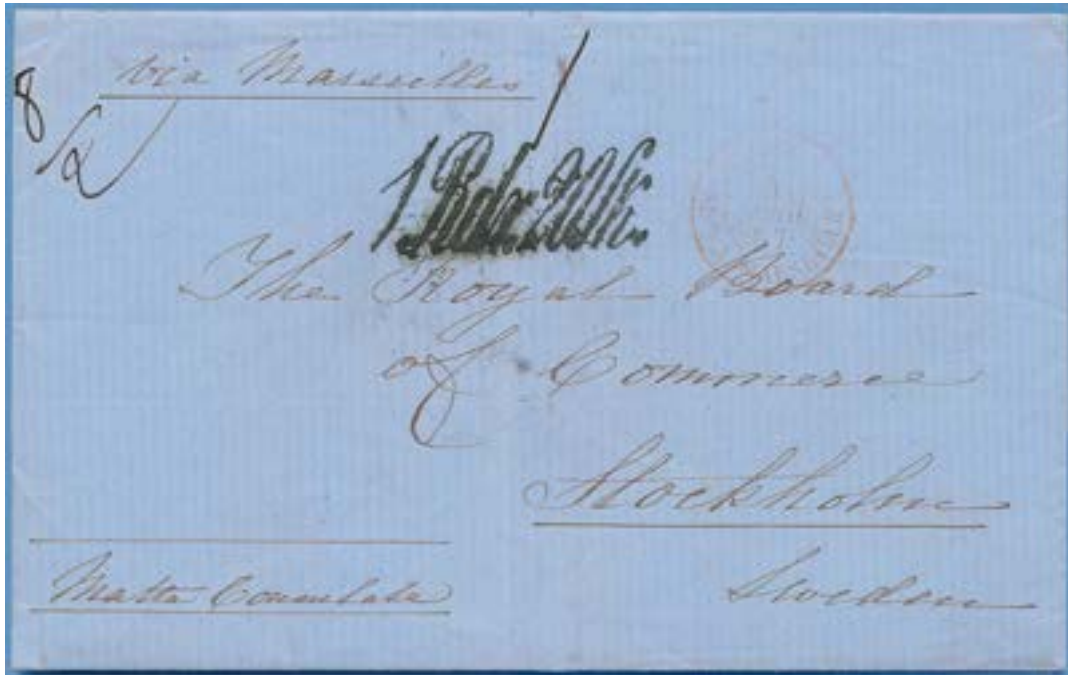 via Marseilles
8
1
The Royal Board
of Commerce
Stockholm
Sweden
Malta Consulate